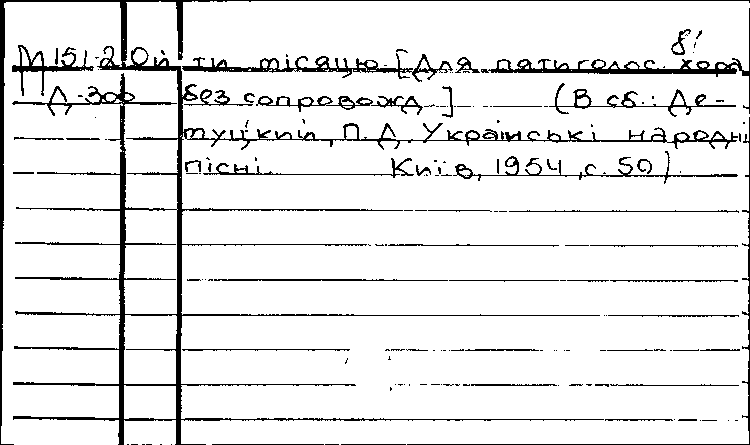 8!
М 151-2 Ой ти місяцю [Для пятиголос. хора
Д-300 без сопровожд.] (В сб.: Де-
туцкий, П.Д. Українські народні
пісні. Київ, 1954, с. 50)